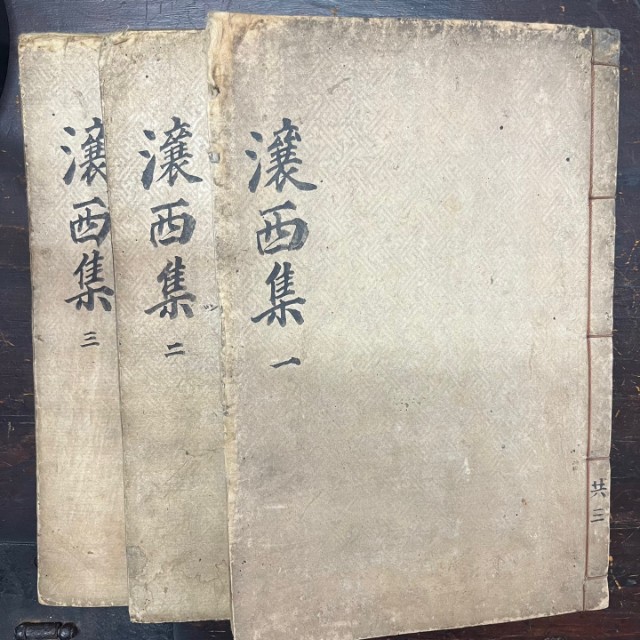 共三
瀼西集 一
瀼西集 二
瀼西集 三